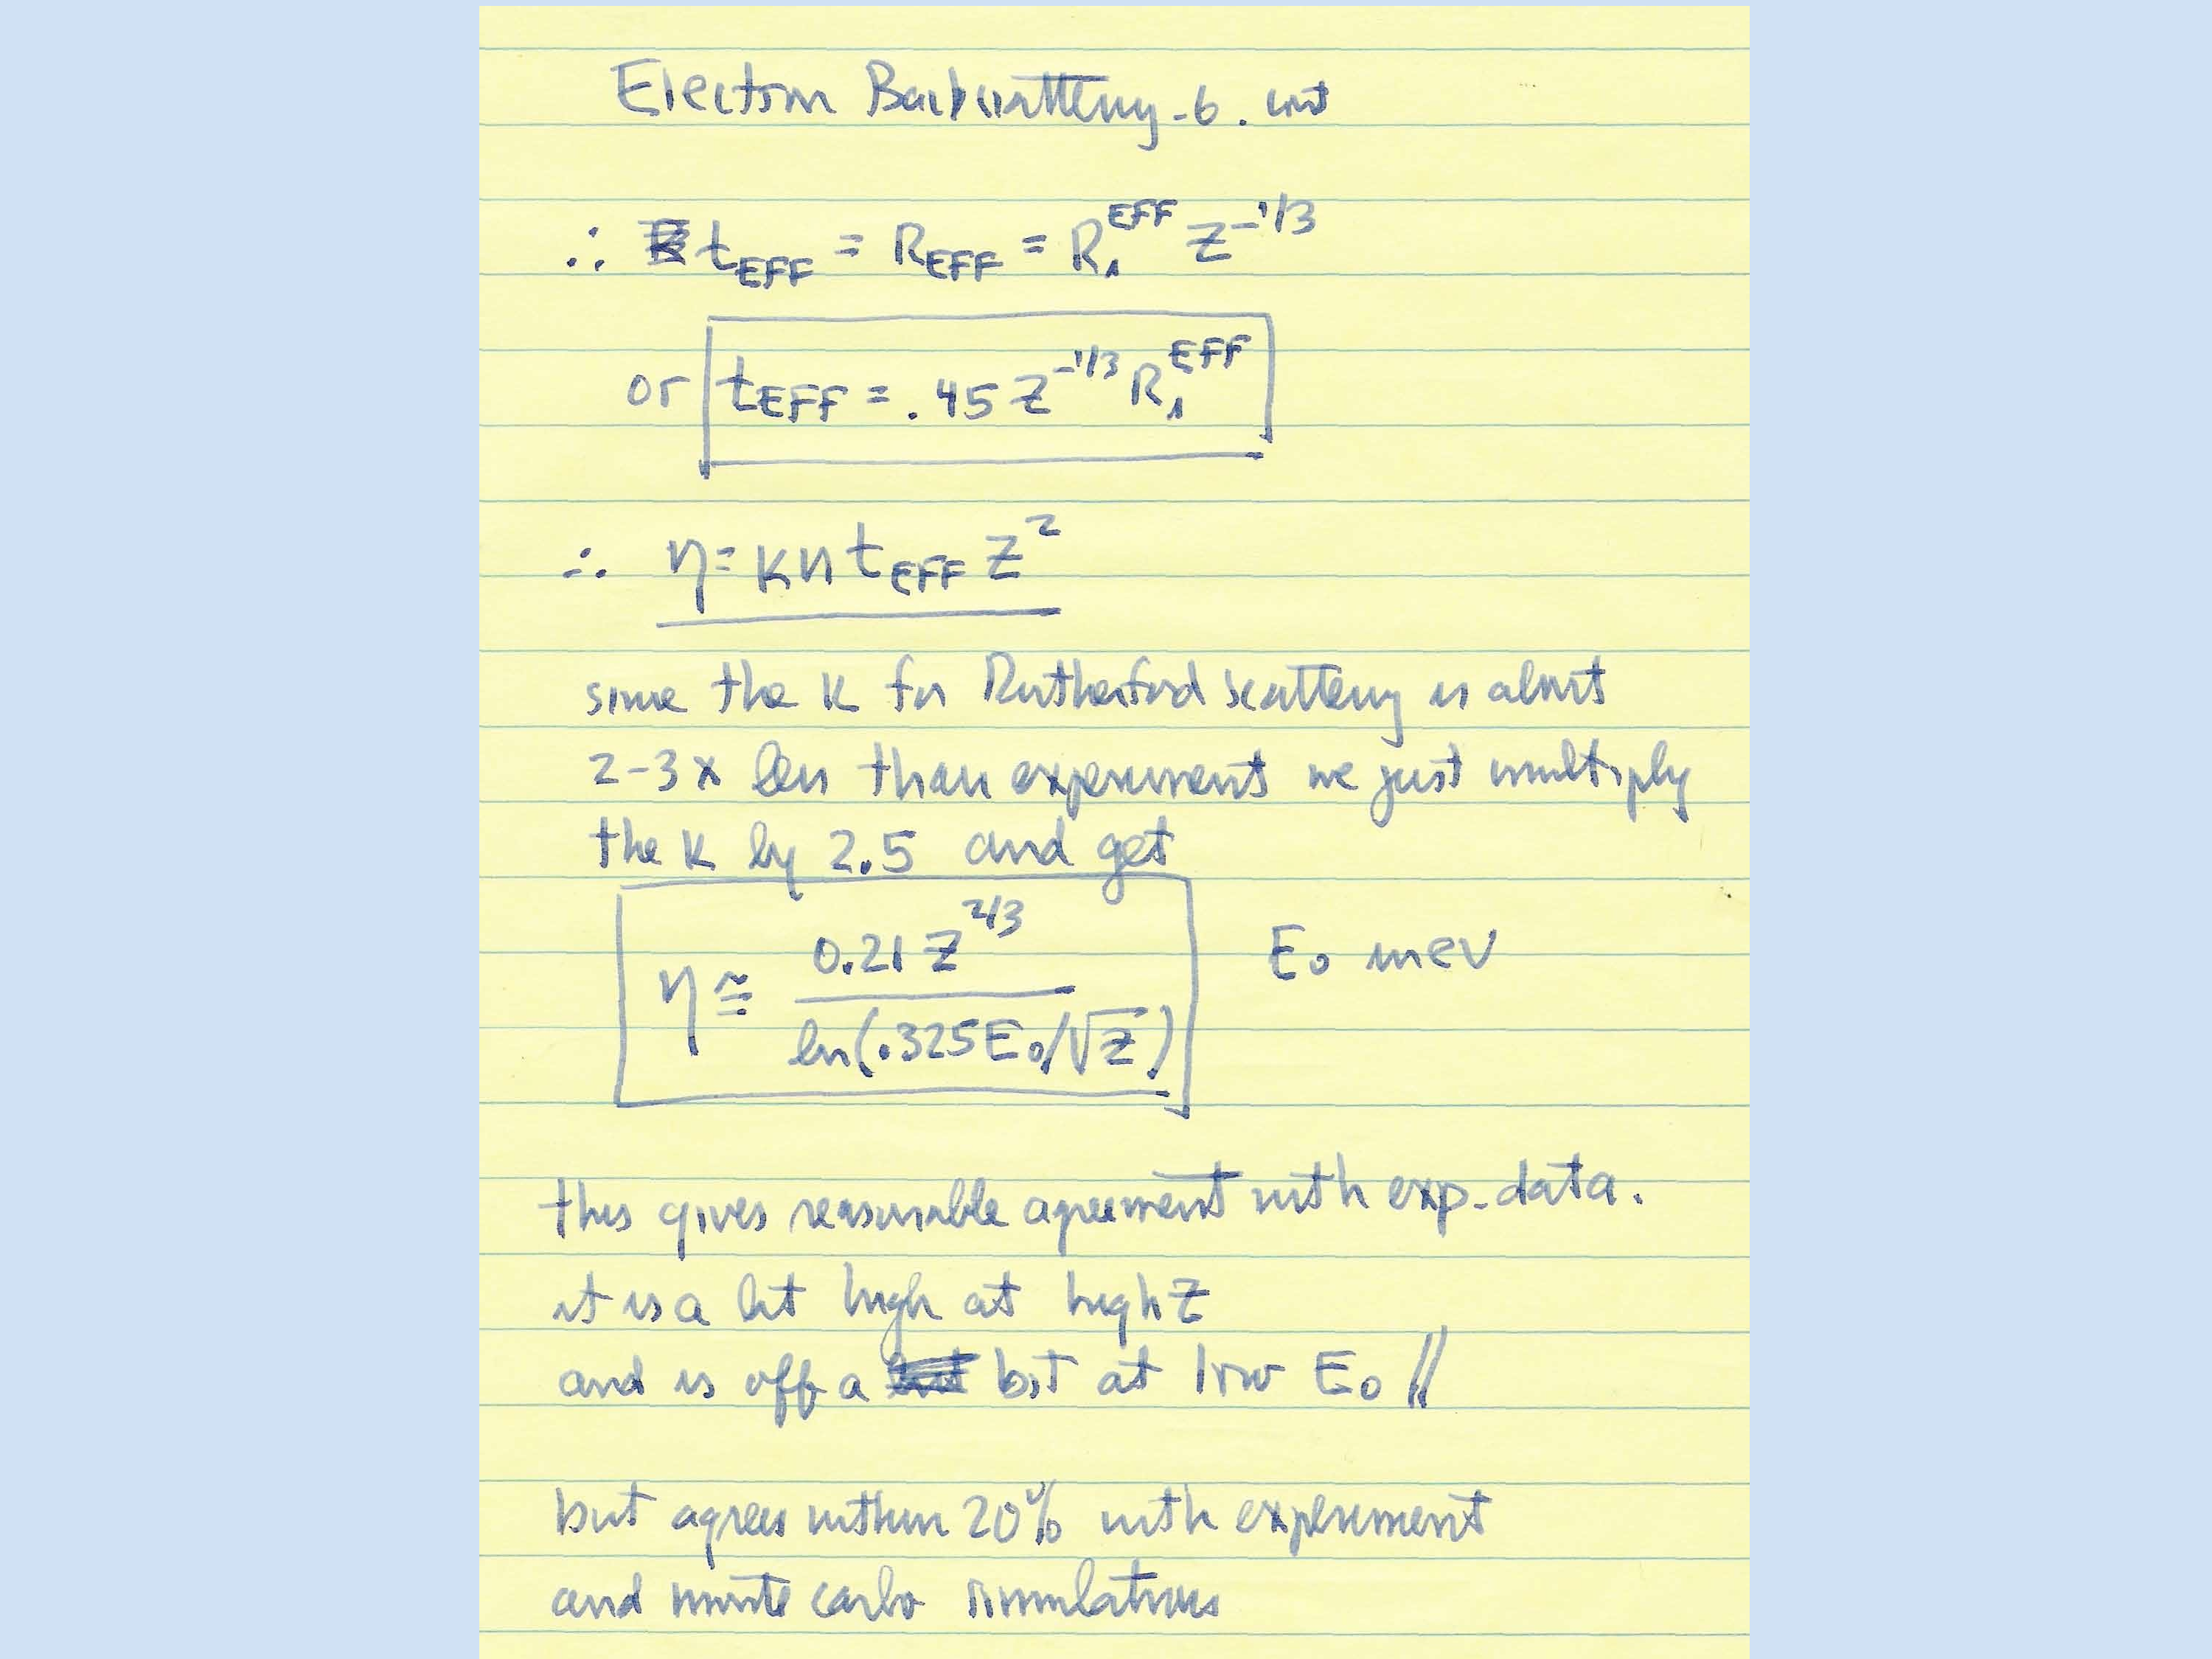 Electron Backscattering - 6. cont
∴ t_EFF = R_EFF = R_1^EFF Z^-1/3
or t_EFF = .45 Z^-1/3 R_1^EFF
∴ η = K n t_EFF Z^2
since the K for Rutherford scattering is about
2-3x less than experiment we just multiply
the K by 2.5 and get
η ≅ 0.21 Z^2/3 / ln(.325 E_0/√Z) E_0 mev
this gives reasonable agreement with exp. data.
it is a bit high at high Z
and is off a bit at low E_0 //
but agrees within 20% with experiment
and monte carlo simulations